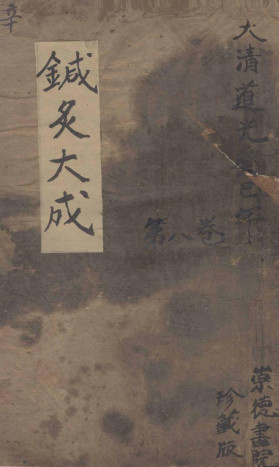 大清道光
第八卷
崇德書院
珍藏版
鍼灸大成
辛